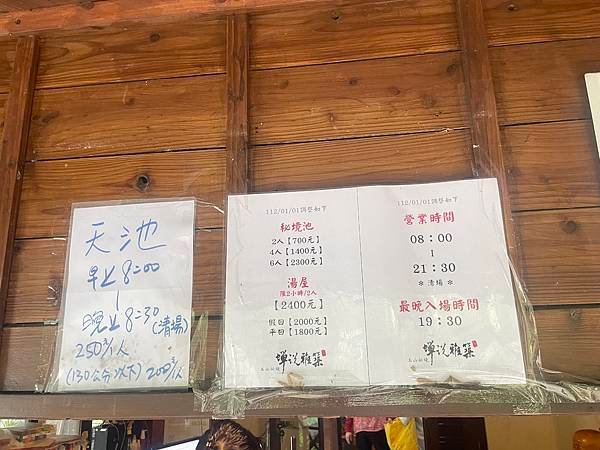 天池
早上8:00
|
晚上8:30(清場)
250元/人
(130公分以下)200元/人
112/01/01調整如下
秘境池
2人【700元】
4人【1400元】
6人【2300元】
湯屋
限2小時/2人
【2400元】
假日【2000元】
平日【1800元】
112/01/01調整如下
營業時間
08：00
|
21：30
＊清場＊
最晚入場時間
19：30